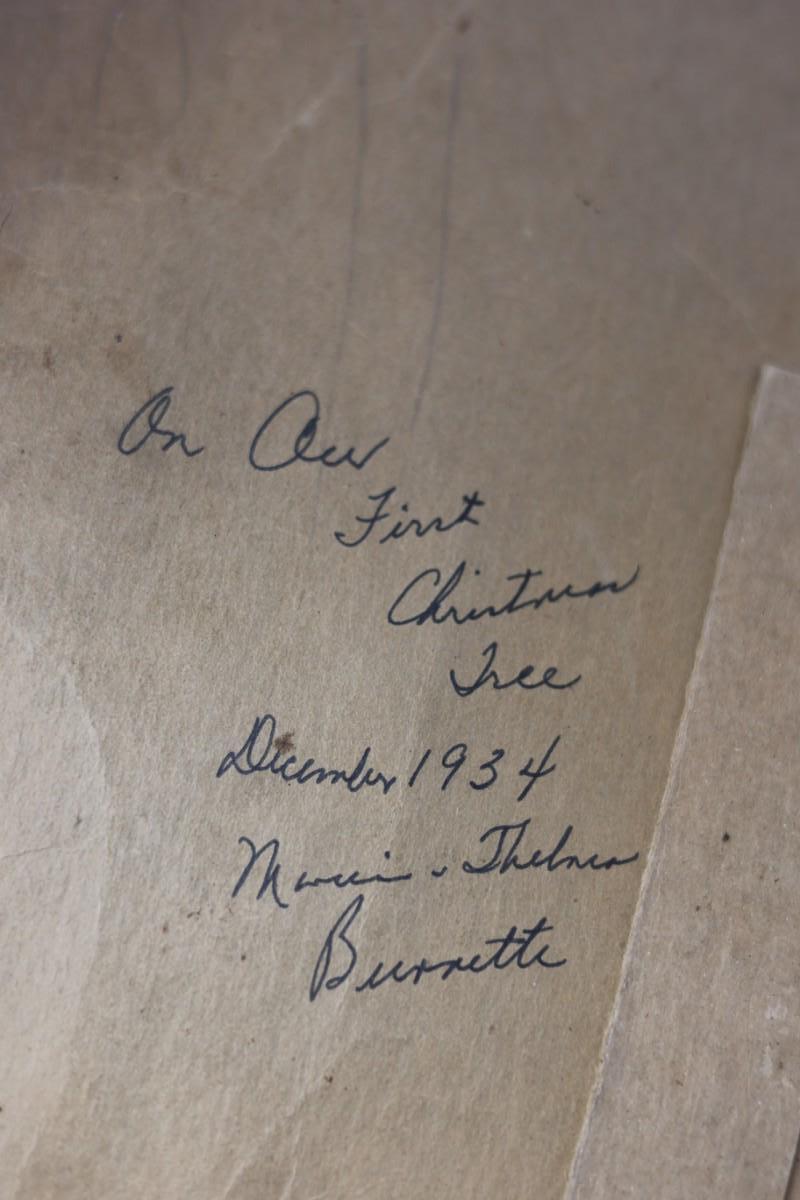 On Our
First
Christmas
Tree
December 1934
& Thelma
Burnette